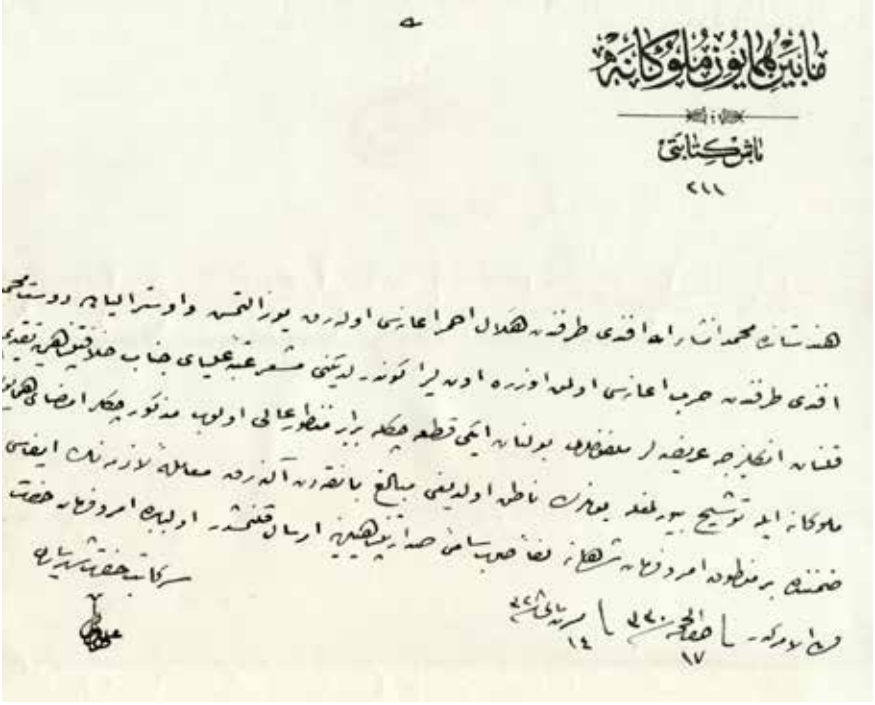 مابين همايون ملوكانه
باش كتابتى
٢١١
هندستانده محمد انشاء الله افندى طرفندن هلال احمر اعانه‌سى اوله‌رق يوز التمش واوستراليا‌ده دوست محمد
افندى طرفندن حرب اعانه‌سى اولمق اوزره اون ليرا كوندرلديكنى مشعر عتبهٔ علياى جناب خلافتپناهى‌يه تقديم
قلنان انكليزجه عريضه‌لر ملفوفاتى بولنان ايكى قطعه چكله برابر منظور عالى اولوب مذكور چكلر امضاى همايون
ملوكانه ايله توشيح بيورلمغله بونلرك ناطق اولديغى مبالغ بانقه‌دن آلنه‌رق معاملهٔ لازمه‌نك ايفاسى
ضمننده بر منطوق امر وفرمان شهانه لفاً صوب سامئ صدارتپناهيلرينه ارسال قلنمشدر اولبابده امر وفرمان حضرت
من له الامركدر ١٧ ذى الحجه ٣٣٠ ١٤ تشرين ثانى ٣٢٨
سركاتب حضرت شهريارى